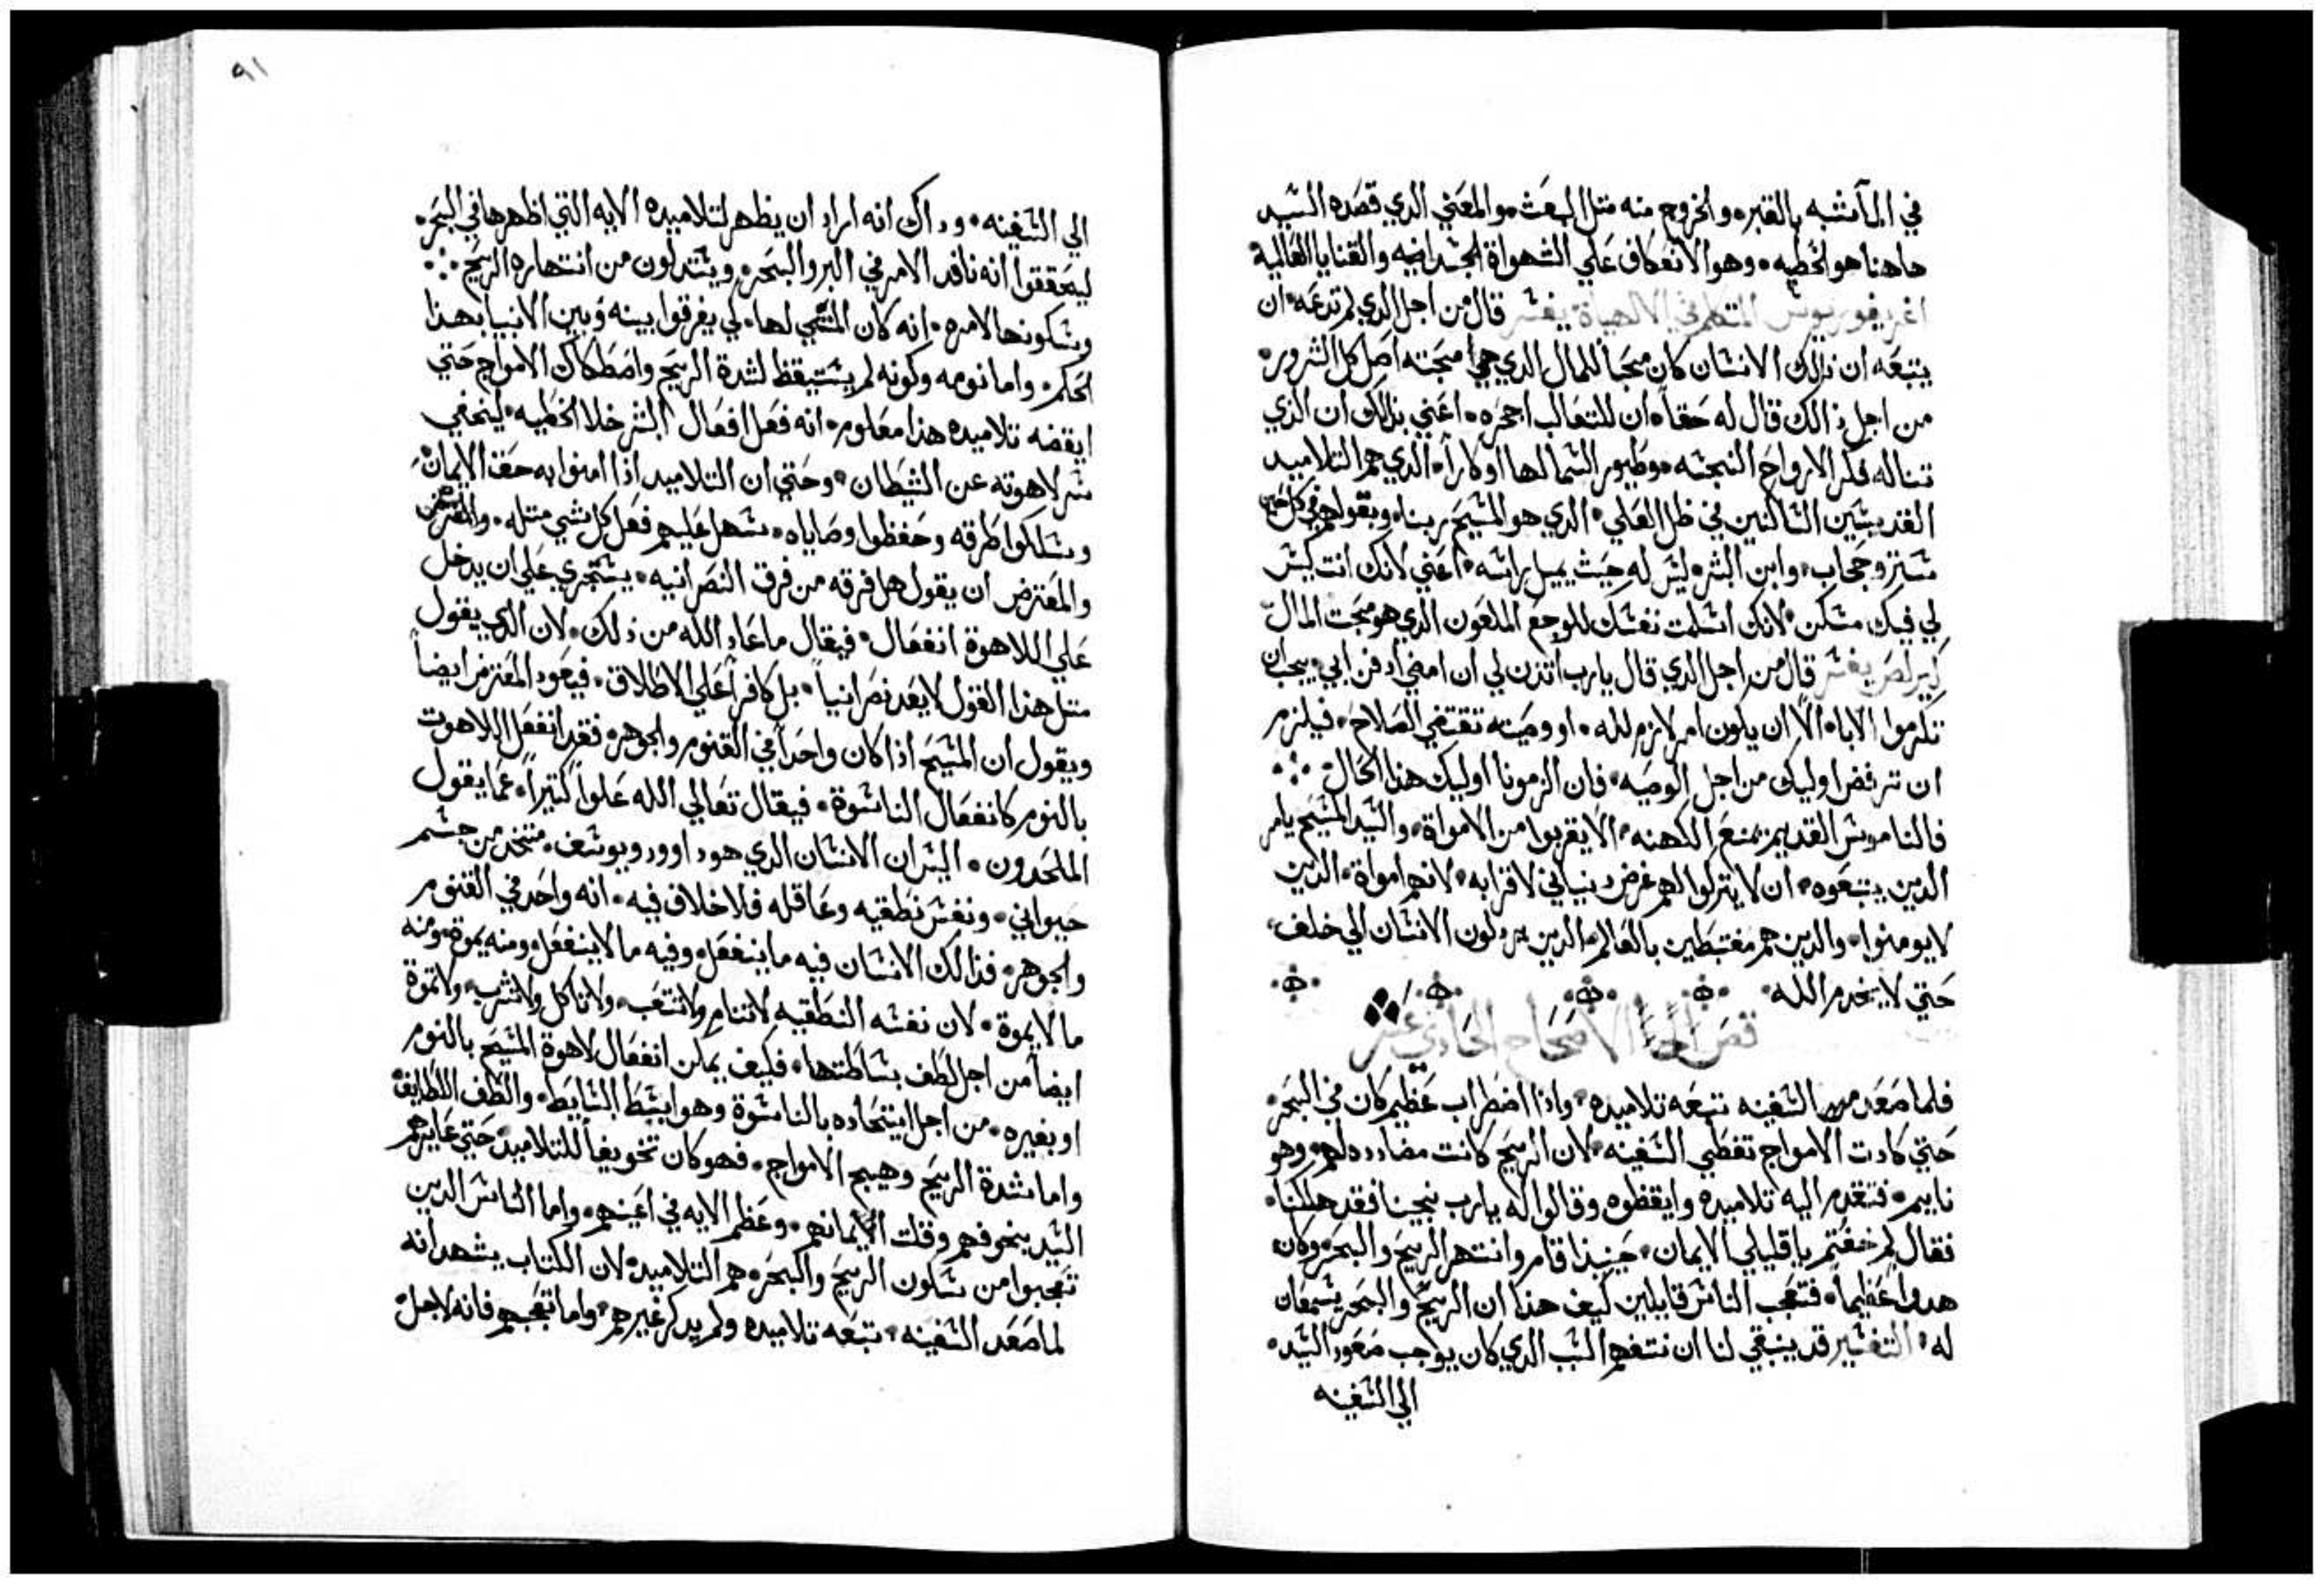 في الـ اشبه بالقبر والخروج منه مثل البعث والمعني الدي قصده السيد
هاهنا هو الخطيه وهو الانعكاف علي الشهواة الجسدانيه والقنايا العالمية
اغريغوريوس المتكلم في الالاهياة يفسر قال من اجل الدي لم تدعه ان
يتبعه ان ذلك الانسان كان محبا للمال الدي هي محبته اصل كل الشرور
من اجل ذالك قال له حقا ان للتعالب اجحره اعني بذالك ان الذي
تناله فكر الارواح النجسه وطيور السما لها اوكارا الدي هم التلاميد
القديسين الساكنين في ظل العلي الدي هو المسيح ربنا ويقولهم في كل حين
ستر وحجاب وابن البشر ليس له حيث يميل راسه اعني لانك انت ليس
لي فيك مسكن لانك اسلمت نفسك للوجع الملعون الذي هو محبت المال
كيرلص يفسر قال من اجل الدي قال يارب اتدن لي ان امضي ادفن ابي يجب ان
تكرموا الابا الا ان يكون امر لازم لله او وصيه تقتضي الصلاح فيلزم
ان ترفض اوليك من اجل الوصيه فان الزمونا اوليك هذا الحال
فالناموس القديم يمنع الكهنه الا يقربوا من الامواة والسيد المسيح يامر
الدين يتبعوه ان لا يتركوا لهم غرض دنياني لاقرابه لانهم امواة الدين
لايومنوا والدين هم مغتبطين بالعالم الدين يردلون الانسان الي خلف
حتي لا يخدم الله
نص الاصحاح الحادي عشر
فلما صعد الي السفينه تتبعه تلاميده واذا اضطراب عظيم كان في البحر
حتي كادت الامواج تغطي السفينه لان الريح كانت مضادده لهم وهو
نايم فتقدم اليه تلاميده وايقظوه وقالوا له يارب نجينا فقد هلكنا
فقال لم خفتم يا قليلي الايمان حينيذا قام وانتهر الريح والبحر وكان
هدوا عظيما فتعجب الناس قايلين كيف هذا ان الريح والبحر يسمعان
له التفسير قد ينبغي لنا ان نتفهم السب الدي كان يواجب صعود السيد
الي السفينه
٩١
الي السفينه وداك انه اراد ان يظهر لتلاميده الايه التي اظهرها في البحر
ليتحققوا انه نافد الامر في البر والبحر ويستدلون من انتهاره الريح
وسكونها لامره انه كان المنشي لها لكي يفرقوا بينه وبين الانبيا بهذا
الحكم واما نومه وكونه لم يستيقظ لشدة الريح واضطكاك الامواج حتي
ايقضه تلاميده هذا معلوم انه فعل افعال البشر خلا الخطيه ليخفي
سر لاهوته عن الشيطان وحتي ان التلاميد اذا امنوا به حق الايمان
وسلكوا طرقه وحفظوا وصاياه سهل عليهم فعل كل شي متله
والمعترض ان يقول هل فرقه من فرق النصرانيه يستجري علي ان يدخل
علي اللاهوة انفعال فيقال معاد الله من ذلك لان الدي يقول
متل هذا القول لا يعد نصرانيا بل كافرا علي الاطلاق فيعود المعترض ايضا
ويقول ان المسيح اذا كان واحدا في القنوم والجوهر فقد انفعل اللاهوت
بالنوم كانفعال الناسوة فيقال تعالي الله علوا كتيرا عما يقول
الملحدون اليس ان الانسان الدي هو داوود ويوسف متخد من جسم
حيواني ونفس نطقيه وعاقله فلا خلاف فيه انه واحد في القنوم
والجوهر فذالك الانسان فيه ما ينفعل وفيه ما لا ينفعل ومنه يموة ومنه
ما لا يموة لان نفسه النطقيه لا تنام ولا تتعب ولا تاكل ولا تشرب ولا تموة
ايضا من اجل لطف بساطتها فكيف يمكن انفعال لاهوة المسيح بالنوم
او بغيره من اجل ايتحاده بالناسوة وهو ابسط البسايط والطف اللطايف
واما شدة الريح وهيج الامواج فهو كان تخويفا للتلاميد حتي عايرهم
السيد بخوفهم وقلت ايمانهم وعظم الايه في اعينهم واما الناس الدين
تعجبوا من سكون الريح والبحر هم التلاميد لان الكتاب يشهد انه
لما صعد السفينه تتبعه تلاميده ولم يدكر غيرهم واما تعجبهم فانه لاجل